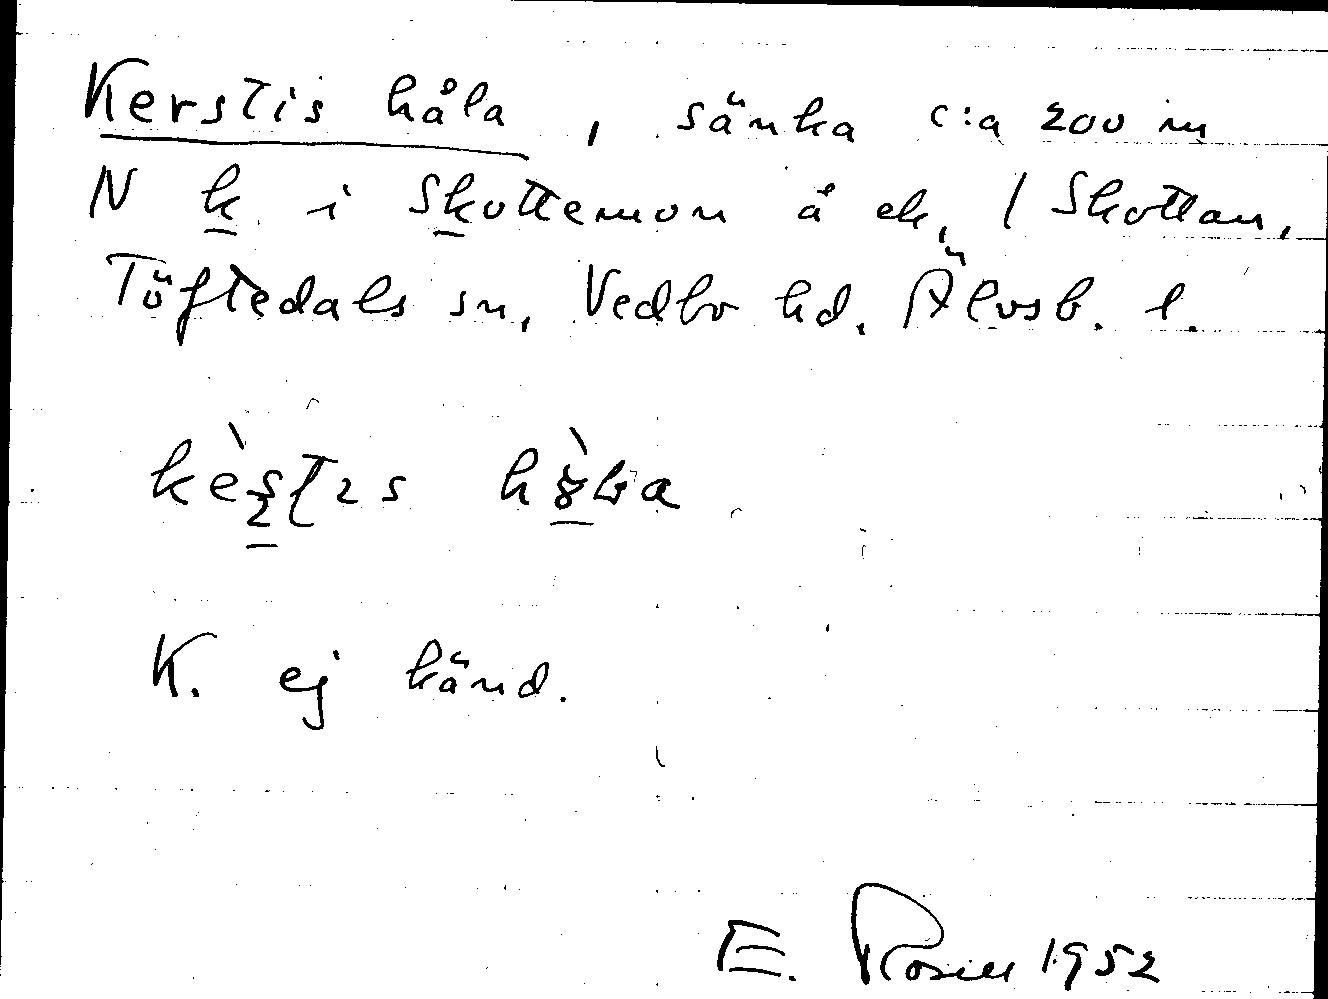 Kerstis håla, sänka c:a 200 m
N k i Skottemon å ek, / Skottan,
Töftedals sn, Vedbo hd. Älvsb. l.
K. ej känd.
E. Rosell 1952